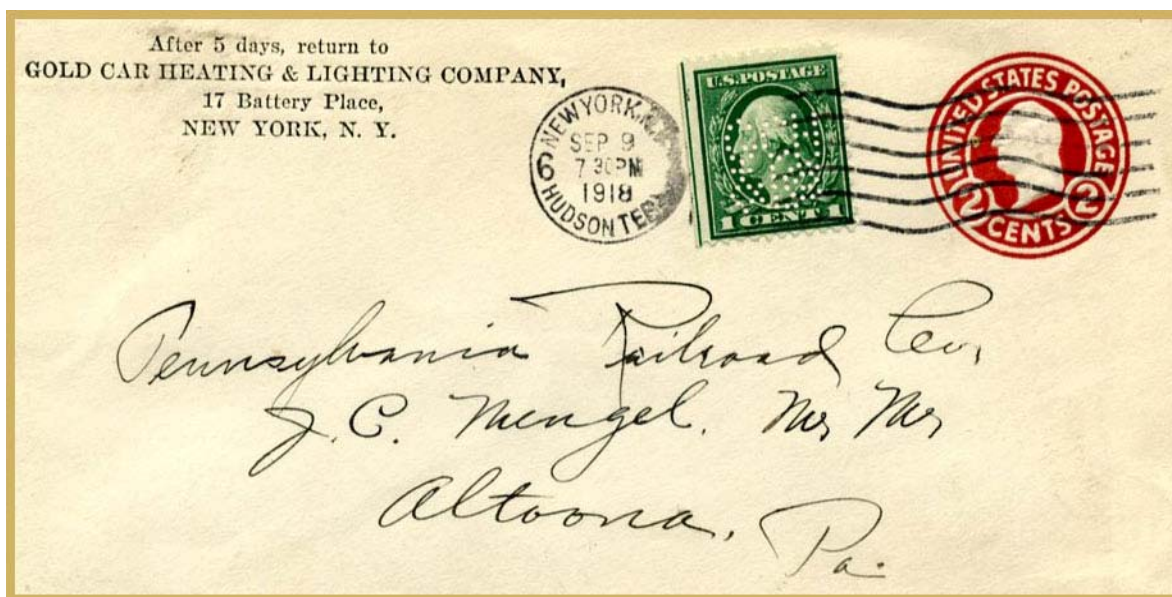 After 5 days, return to
GOLD CAR HEATING & LIGHTING COMPANY,
17 Battery Place,
NEW YORK, N. Y.
NEW YORK, N.Y.
SEP 9
7 30 PM
1918
6
HUDSON TER
U.S. POSTAGE
1 CENT 1
UNITED STATES POSTAGE
2 CENTS 2
Pennsylvania Railroad Co.,
J. C. Mengel.
Altoona, Pa.